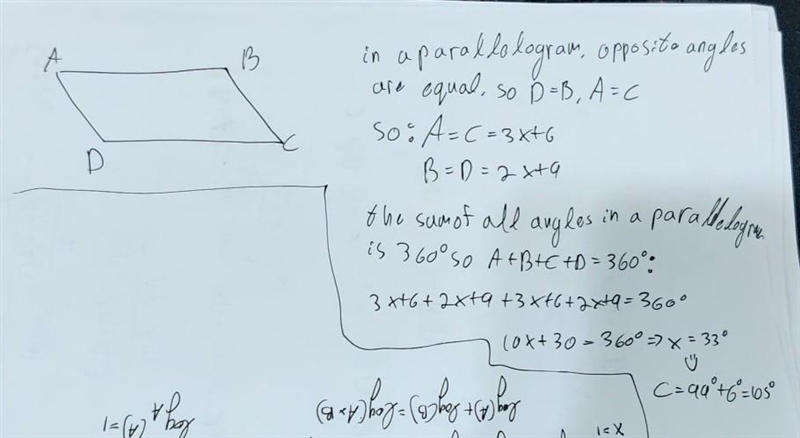 A
B
D
C
in a parallelogram, opposite angles
are equal, so D=B, A=C
so: A=C=3x+6
B=D=2x+9
the sum of all angles in a parallelogram
is 360° so A+B+C+D=360°:
3x+6+2x+9+3x+6+2x+9=360°
10x+30=360° ⇒ x=33°
C=99°+6°=105°
log(A)+log(B)=log(A×B)
log A (A)=1
x=1